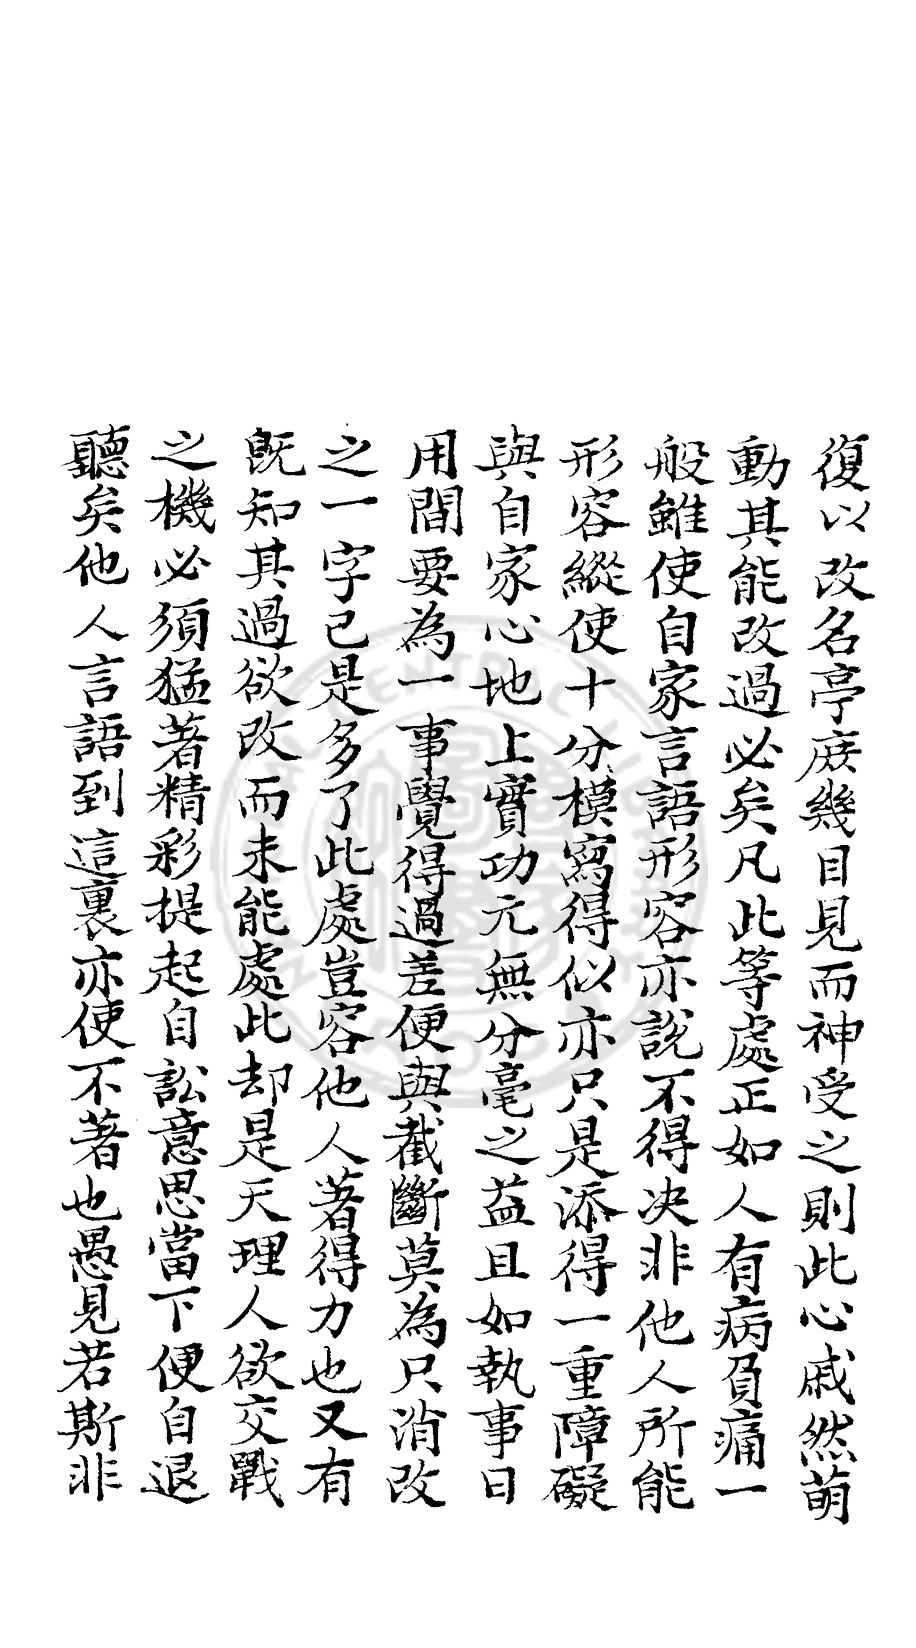 復以改名亭庻幾目見而神受之則此心戚然萌
動其能改過必矣凡此等處正如人有病負痛一
般雖使自家言語形容亦說不得决非他人所能
形容縱使十分模寫得似亦只是添得一重障礙
與自家心地上實功元無分毫之益且如執事日
用間要為一事覺得過差便與截斷莫為只消改
之一字已是多了此處豈容他人著得力也又有
既知其過欲改而未能處此却是天理人欲交戰
之機必須猛著精彩提起自訟意思當下便自退
聽矣他人言語到這裏亦使不著也愚見若斯非